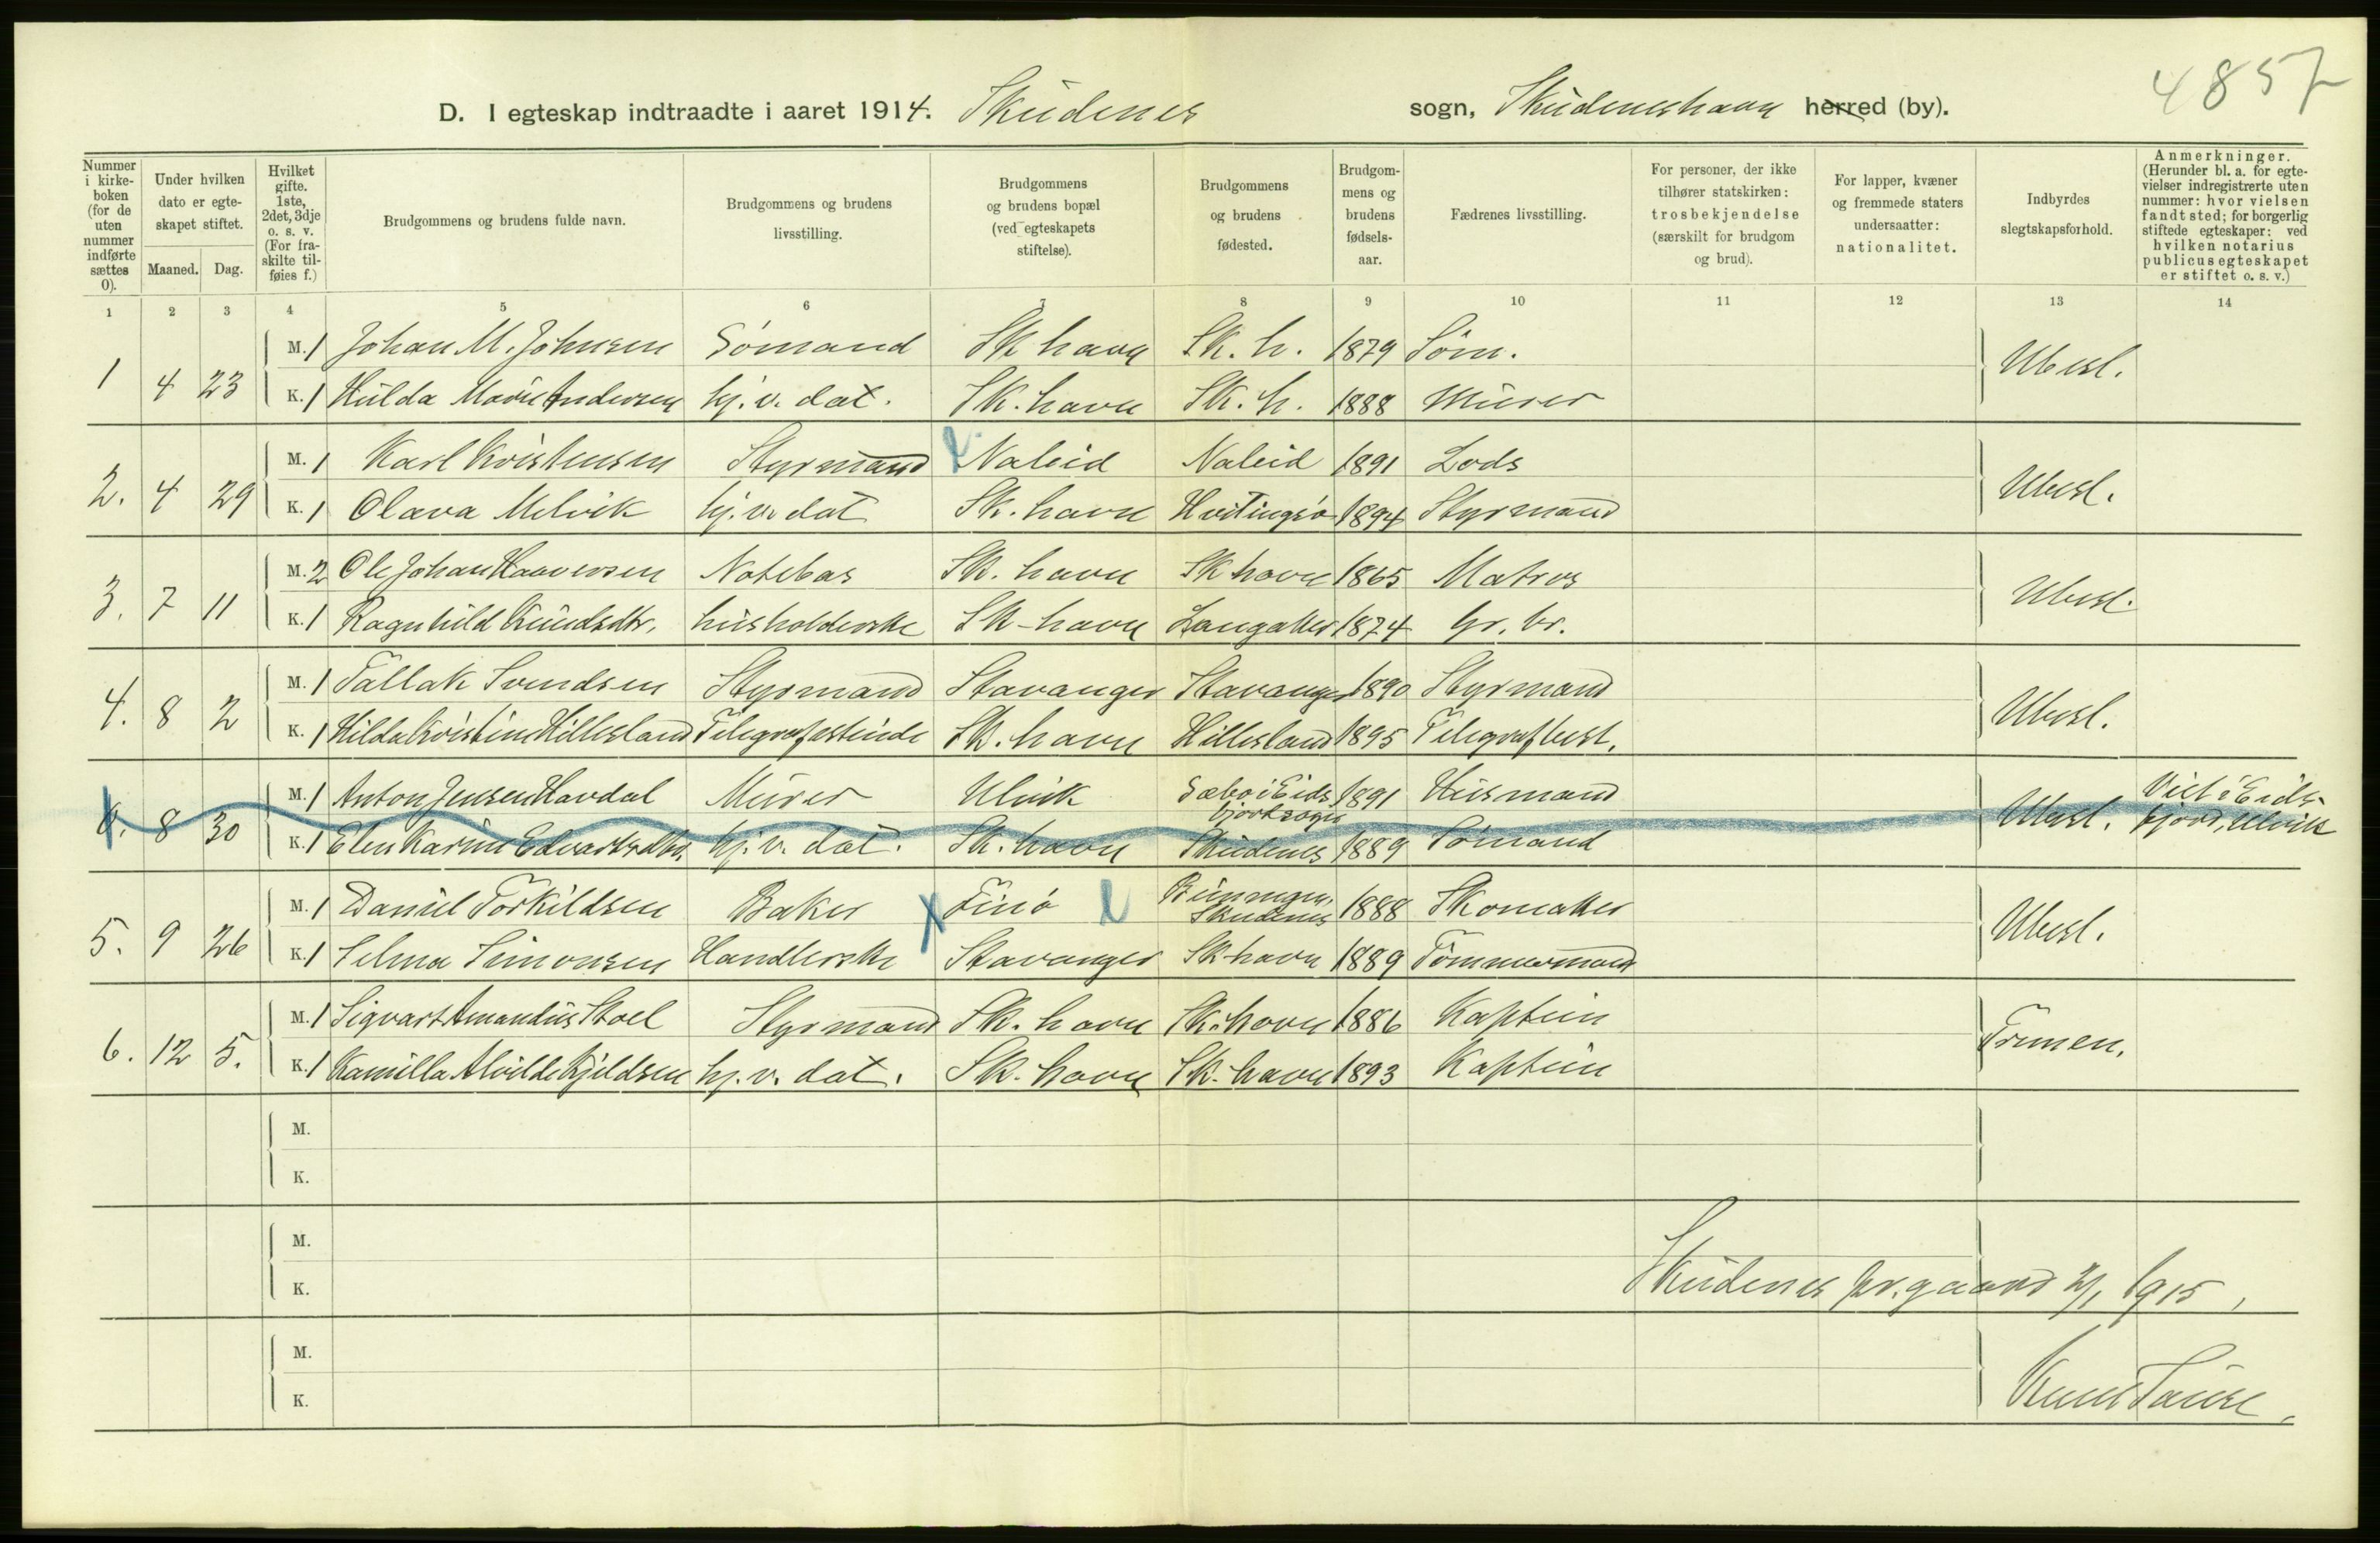 4857
D. I egteskap indtraadte i aaret 1914. Skudenes sogn, Skudeneshavn herred (by).
Nummer i kirkeboken (for de uten nummer indførte sættes 0).
Under hvilken dato er egteskapet stiftet.
Maaned. Dag.
Hvilket gifte. 1ste, 2det, 3dje o. s. v. (For fraskilte tilføies f.)
Brudgommens og brudens fulde navn.
Brudgommens og brudens livsstilling.
Brudgommens og brudens bopæl (ved egteskapets stiftelse).
Brudgommens og brudens fødested.
Brudgommens og brudens fødselsaar.
Fædrenes livsstilling.
For personer, der ikke tilhører statskirken: trosbekjendelse (særskilt for brudgom og brud).
For lapper, kvæner og fremmede staters undersaatter: nationalitet.
Indbyrdes slegtskapsforhold.
Anmerkninger. (Herunder bl. a. for egtevielser indregistrerte uten nummer: hvor vielsen fandt sted; for borgerlig stiftede egteskaper: ved hvilken notarius publicus egteskapet er stiftet o. s. v.)
1 2 3 4 5 6 7 8 9 10 11 12 13 14
M. 1 Johan M. Johnsen Sömand Sk havn Sk. h. 1879 Söm.
1 4 23 Ubesl.
K. 1 Hulda Marie Andersen hj. v. dat. Sk. havn Sk. h. 1888 Murer
M. 1 Karl Kristensen Styrmand Naleid Naleid 1891 Lods
2. 4 29 Ubesl.
K. 1 Olava Melvik hj. v. dat Sk. havn Hvitingsö 1894 Styrmand
M. 2 Ole Johan Haaversen Notebas Sk. havn Sk havn 1865 Matros
3. 7 11 Ubesl.
K. 1 Ragnhild Knudsdtr. husholderske Sk-havn Langaker 1874 Gr. br.
M. 1 Tallak Svendsen Styrmand Stavanger Stavanger 1890 Styrmand
4. 8 2 Ubesl.
K. 1 Hilda Kristine Hillesland Telegrafistinde Sk. havn Hillesland 1895 Telegrafbest.
M. 1 Anton Jensen Havdal Murer Ulvik Sæbo i Eidsfjord sogn 1891 Husmand
0. 8 30 Ubesl. Viet i Eidsfjord, Ulvik
K. 1 Elen Karine Edvartsdtr. hj. v. dat. Sk. havn Skudenes 1889 Sömand
M. 1 Daniel Torkildsen Baker x Finö Skudenes 1888 Skomaker
5. 9 26 Ubesl.
K. 1 Selma Simonsen Handlerske Stavanger Sk havn 1889 Tömmermand
M. 1 Sigvart Amandus Stoel Styrmand Sk. havn Sk. havn 1886 Kaptein
6. 12 5. Trmen.
K. 1 Kamilla Alvilde Kjeldsen hj. v. dat. Sk. havn Sk. havn 1893 Kaptein
M.
K.
M.
K.
Skudenes pr.gaard 2/1 1915,
M.
K.